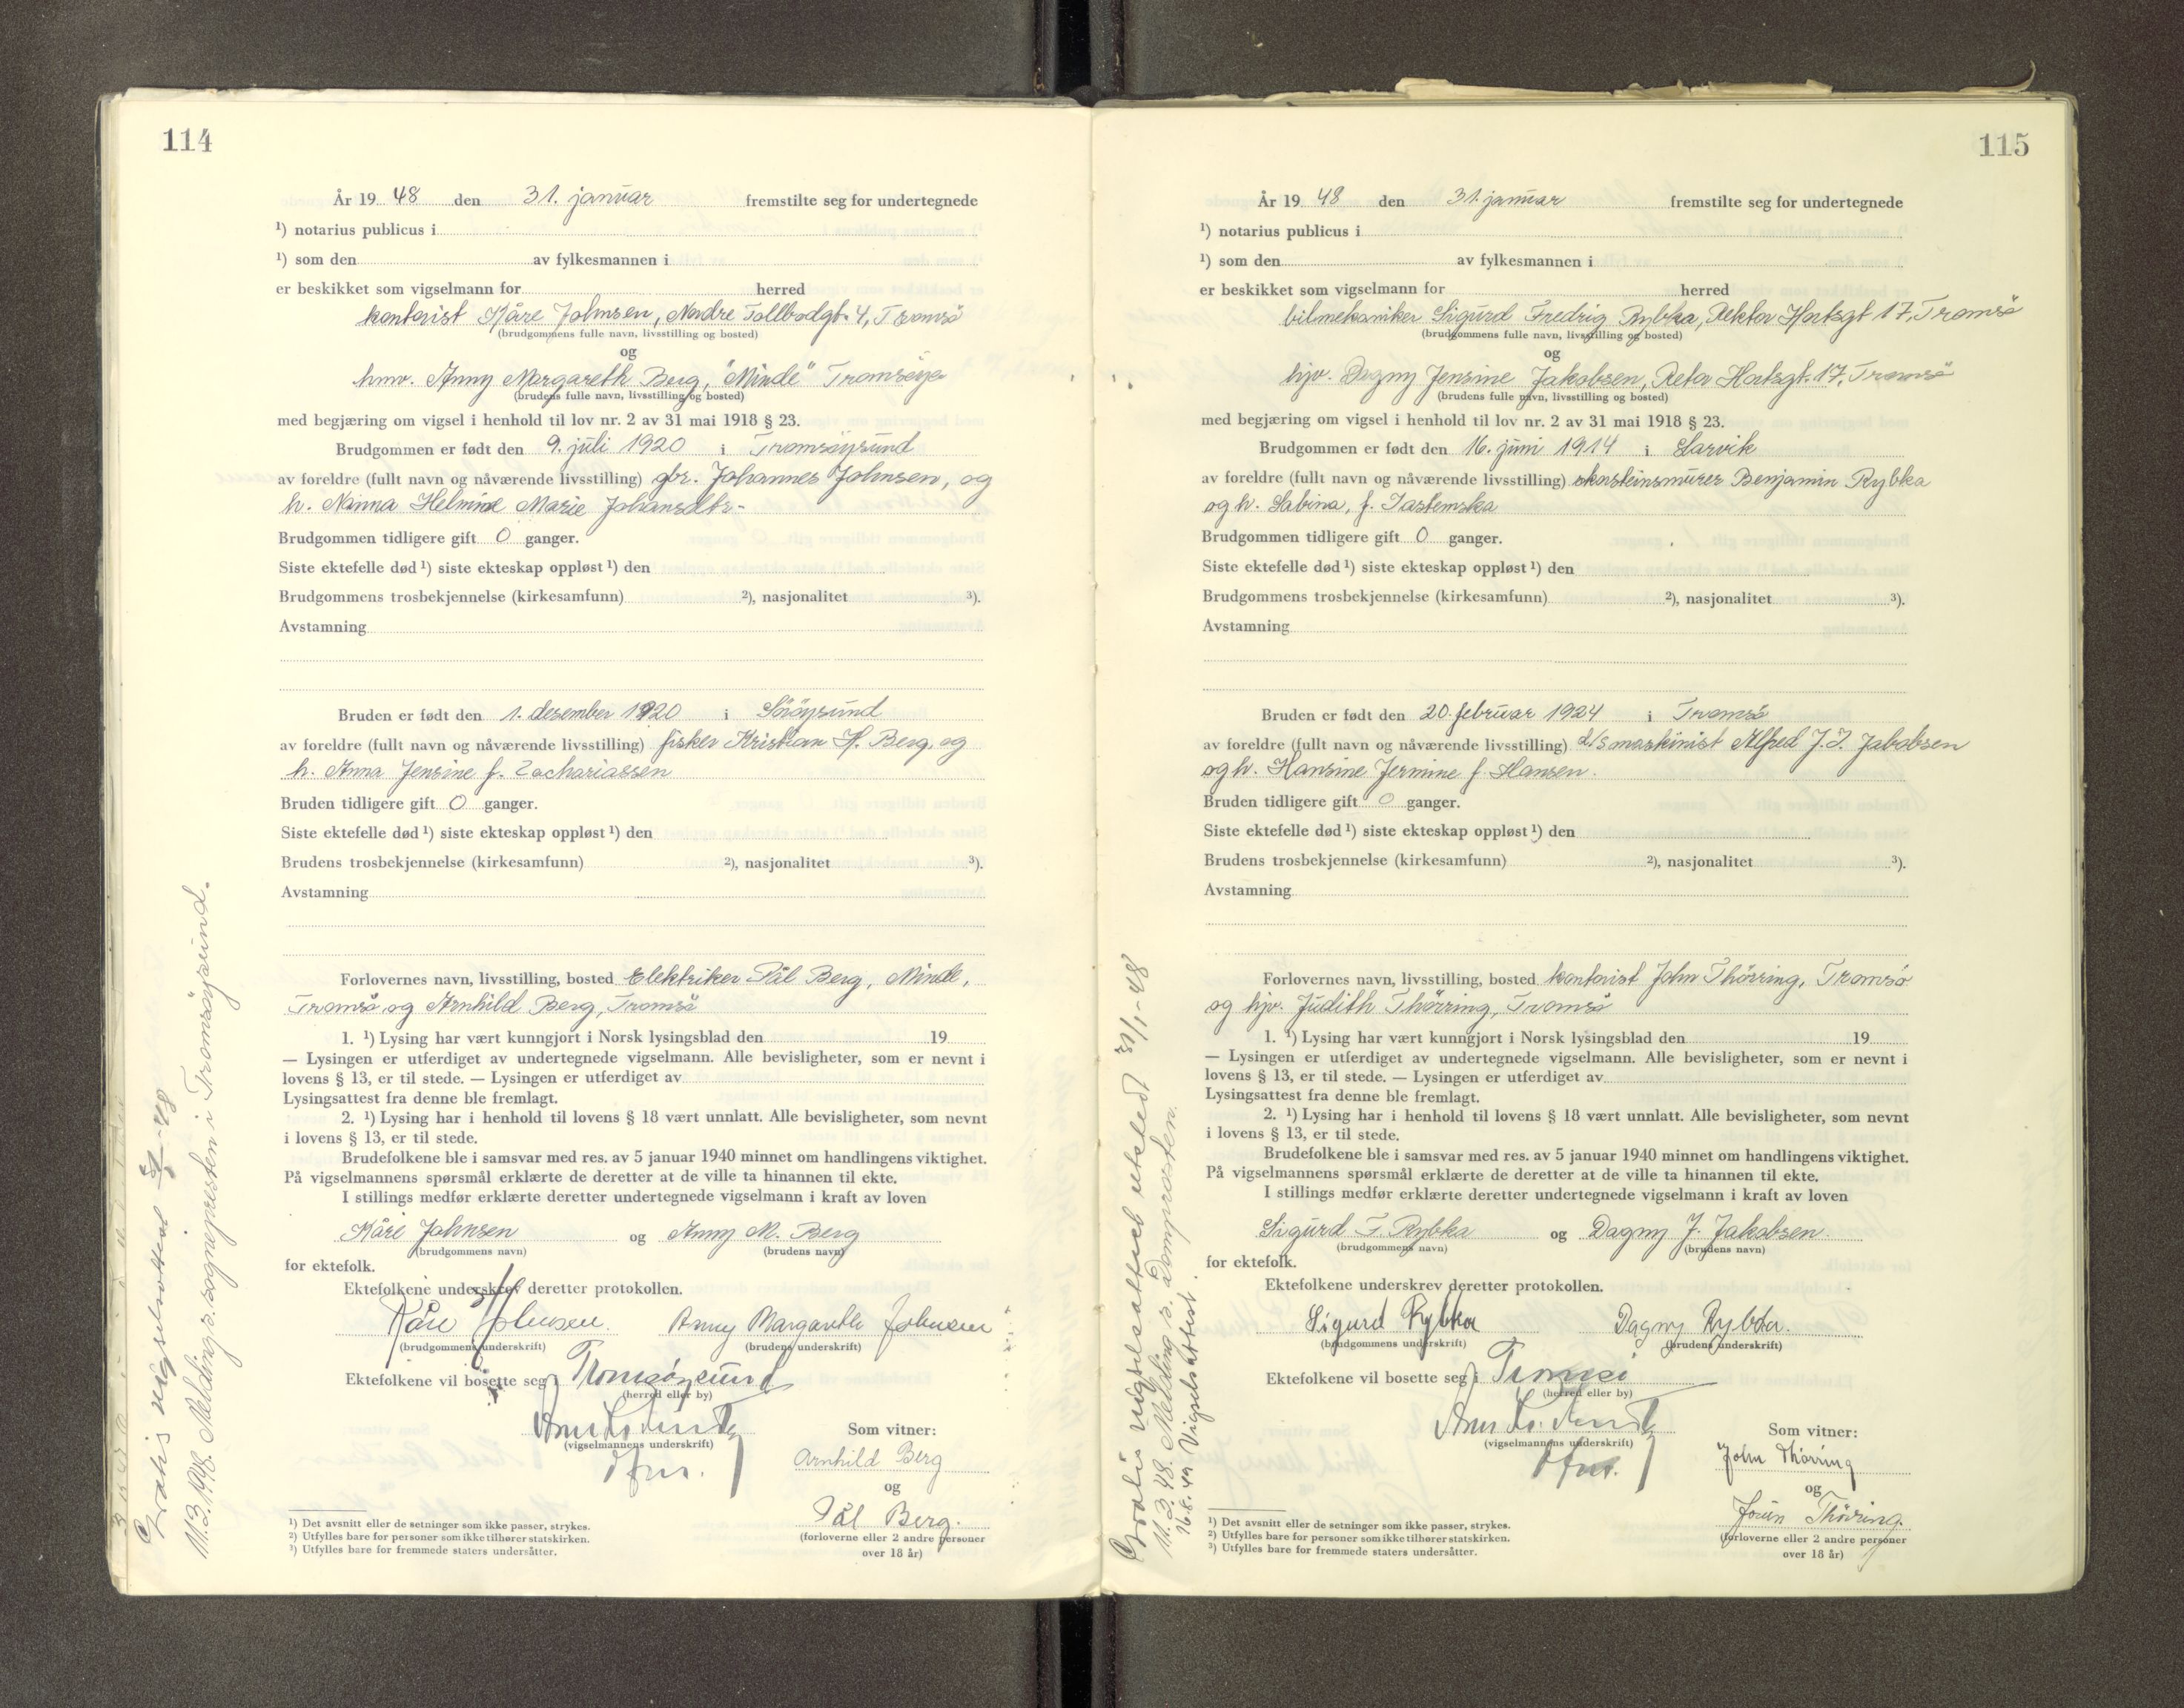 114
År 19 48 den 31. januar fremstilte seg for undertegnede
¹) notarius publicus i
¹) som den av fylkesmannen i
er beskikket som vigselmann for herred
kontorist Kåre Johnsen, Nordre Tollbodgt. 4, Tromsö
(brudgommens fulle navn, livsstilling og bosted)
og
hmv. Anny Margareth Berg, "Minde" Tromsöya
(brudens fulle navn, livsstilling og bosted)
med begjæring om vigsel i henhold til lov nr. 2 av 31 mai 1918 § 23.
Brudgommen er født den 9. juli 1920 i Tromsöysund
av foreldre (fullt navn og nåværende livsstilling) gbr. Johannes Johnsen, og
h. Nanna Helmine Marie Johansdtr-
Brudgommen tidligere gift 0 ganger.
Siste ektefelle død ¹) siste ekteskap oppløst ¹) den
Brudgommens trosbekjennelse (kirkesamfunn) ²), nasjonalitet ³).
Avstamning
Bruden er født den 1. desember 1920 i Söröysund
av foreldre (fullt navn og nåværende livsstilling) fisker Kristian H. Berg, og
h. Anna Jensine f. Zachariassen
Bruden tidligere gift 0 ganger.
Siste ektefelle død ¹) siste ekteskap oppløst ¹) den
Brudens trosbekjennelse (kirkesamfunn) ²), nasjonalitet ³).
Avstamning
Forlovernes navn, livsstilling, bosted Elektriker Pål Berg, Minde,
Tromsö og Arnhild Berg, Tromsö
1. ¹) Lysing har vært kunngjort i Norsk lysingsblad den 19
— Lysingen er utferdiget av undertegnede vigselmann. Alle bevisligheter, som er nevnt i
lovens § 13, er til stede. — Lysingen er utferdiget av
Lysingsattest fra denne ble fremlagt.
2. ¹) Lysing har i henhold til lovens § 18 vært unnlatt. Alle bevisligheter, som nevnt
i lovens § 13, er til stede.
Brudefolkene ble i samsvar med res. av 5 januar 1940 minnet om handlingens viktighet.
På vigselmannens spørsmål erklærte de deretter at de ville ta hinannen til ekte.
I stillings medfør erklærte deretter undertegnede vigselmann i kraft av loven
Kåre Johnsen og Anny M. Berg
(brudgommens navn) (brudens navn)
for ektefolk.
Ektefolkene underskrev deretter protokollen.
Kåre Johnsen. Anny Margareth Johnsen
(brudgommens underskrift) (brudens underskrift)
Ektefolkene vil bosette seg i Tromsöysund
(herred eller by)
(vigselmannens underskrift)
Som vitner:
Arnhild Berg
og
Pål Berg.
(forloverne eller 2 andre personer
over 18 år)
¹) Det avsnitt eller de setninger som ikke passer, strykes.
²) Utfylles bare for personer som ikke tilhører statskirken.
³) Utfylles bare for fremmede staters undersåtter.
Gratis vigselsattest
11.3.1948. Melding s. sognepresten i Tromsöysund.
115
År 19 48 den 31. januar fremstilte seg for undertegnede
¹) notarius publicus i
¹) som den av fylkesmannen i
er beskikket som vigselmann for herred
bilmekaniker Sigurd Fredrig Rybka, Rektor Hortsgt 17, Tromsö
(brudgommens fulle navn, livsstilling og bosted)
og
hjv. Dagny Jensine Jakobsen, Retor Hortsgt. 17, Tromsö
(brudens fulle navn, livsstilling og bosted)
med begjæring om vigsel i henhold til lov nr. 2 av 31 mai 1918 § 23.
Brudgommen er født den 16. juni 1914 i Larvik
av foreldre (fullt navn og nåværende livsstilling) skorsteinsmurer Benjamin Rybka
og h. Sabina, f. Jastemska
Brudgommen tidligere gift 0 ganger.
Siste ektefelle død ¹) siste ekteskap oppløst ¹) den
Brudgommens trosbekjennelse (kirkesamfunn) ²), nasjonalitet ³).
Avstamning
Bruden er født den 20. februar 1924 i Tromsö
av foreldre (fullt navn og nåværende livsstilling) d/s maskinist Alfred J. I. Jakobsen
og h. Hansine Jermine f. Hansen.
Bruden tidligere gift 0 ganger.
Siste ektefelle død ¹) siste ekteskap oppløst ¹) den
Brudens trosbekjennelse (kirkesamfunn) ²), nasjonalitet ³).
Avstamning
Forlovernes navn, livsstilling, bosted kontorist John Thörring, Tromsö
og hjv. Judith Thörring, Tromsö
1. ¹) Lysing har vært kunngjort i Norsk lysingsblad den 19
— Lysingen er utferdiget av undertegnede vigselmann. Alle bevisligheter, som er nevnt i
lovens § 13, er til stede. — Lysingen er utferdiget av
Lysingsattest fra denne ble fremlagt.
2. ¹) Lysing har i henhold til lovens § 18 vært unnlatt. Alle bevisligheter, som nevnt
i lovens § 13, er til stede.
Brudefolkene ble i samsvar med res. av 5 januar 1940 minnet om handlingens viktighet.
På vigselmannens spørsmål erklærte de deretter at de ville ta hinannen til ekte.
I stillings medfør erklærte deretter undertegnede vigselmann i kraft av loven
Sigurd F. Rybka og Dagny J. Jakobsen.
(brudgommens navn) (brudens navn)
for ektefolk.
Ektefolkene underskrev deretter protokollen.
Sigurd Rybka Dagny Rybka.
(brudgommens underskrift) (brudens underskrift)
Ektefolkene vil bosette seg i Tromsö
(herred eller by)
(vigselmannens underskrift)
Som vitner:
John Thörring
og
Thörring.
(forloverne eller 2 andre personer
over 18 år)
¹) Det avsnitt eller de setninger som ikke passer, strykes.
²) Utfylles bare for personer som ikke tilhører statskirken.
³) Utfylles bare for fremmede staters undersåtter.
Gratis vigselsattest utstedt 31/1-48
11.3.48. Melding s. Domprosten.
16.8.49 Vigselsattest.